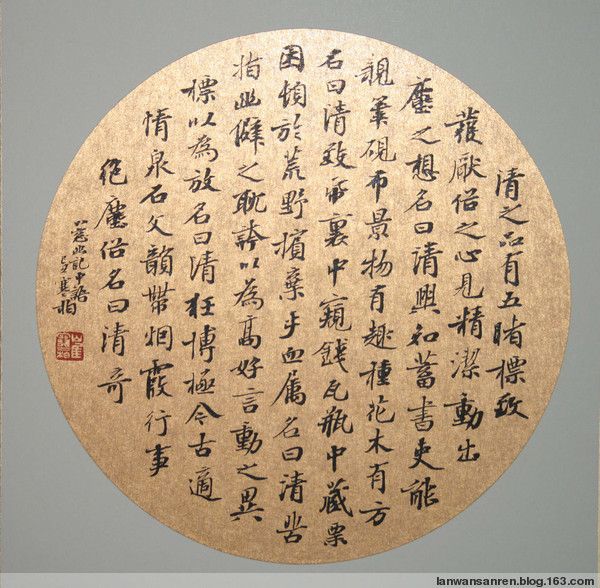 清之品有五睹標致
發厭俗之心見精潔動出
塵之想名曰清興知蓄書史能
親筆硯布景物有趣種花木有方
名曰清致帋裹中窺錢瓦瓶中藏粟
困頓於荒野擯棄乎血属名曰清苦
指幽僻之耽誇以為高好言動之異
標以為放名曰清狂博極今古適
情泉石文韻帶烟霞行事
絕塵俗名曰清奇
小窓幽記中語
lanwansanren.blog.163.com